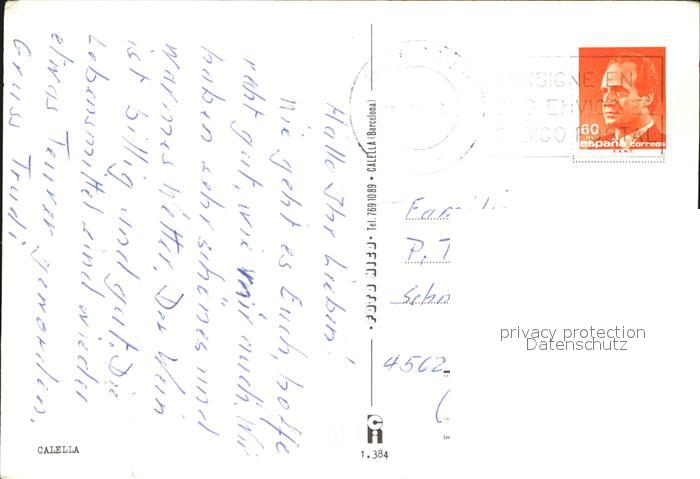 Hallo Ihr Lieben!
Wie geht es Euch, hoffe
recht gut, wie mir auch. Wir
haben sehr schönes und
warmes Wetter. Der Wein
ist billig und gut. Die
Lebensmittel sind wieder
etwas Teurer geworden.
Gruss Trudi
CALELLA
Tel. 7691089 • CALELLA (Barcelona)
ci
1.384
CONSIGNE EN
SUS ENVIOS EL
CODIGO POSTAL
60
españa correos
Familie
P. T
Schn
4562
privacy protection
Datenschutz